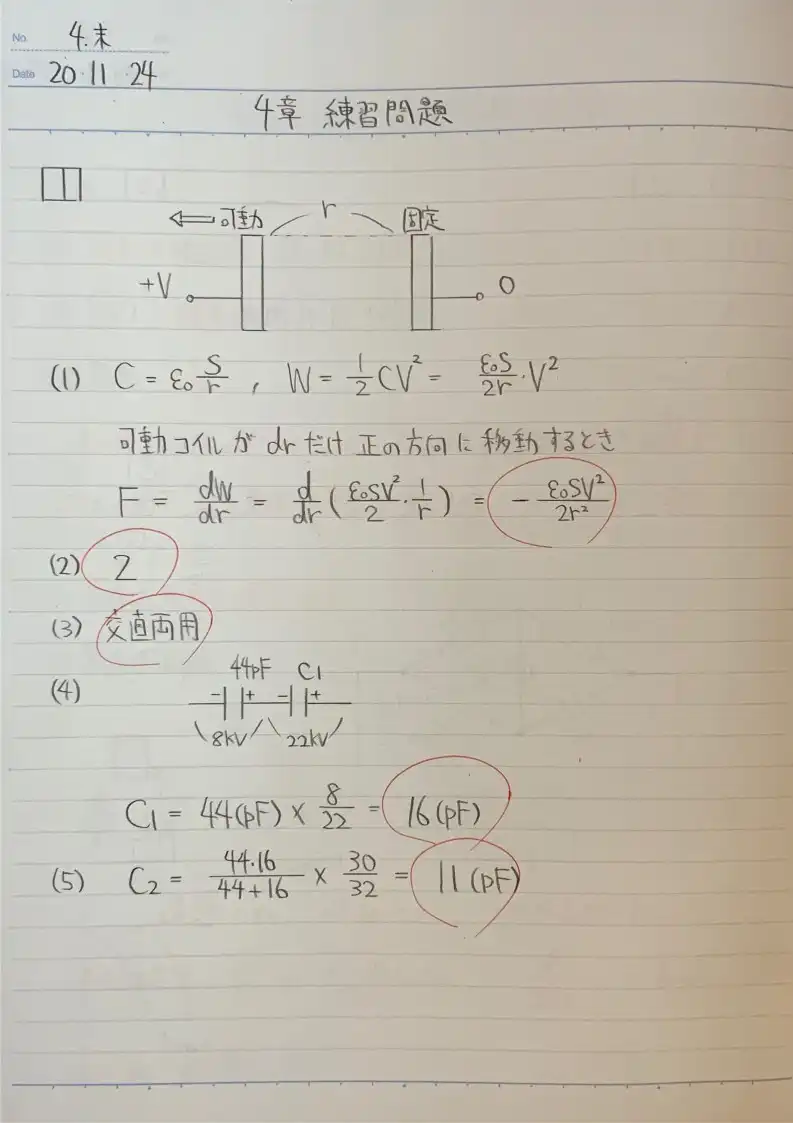 No. 4.末
Date 20・11・24
4章 練習問題
1
⇦可動 r 固定
+V 0
(1) C = ε₀ S/r , W = 1/2 CV² = ε₀S/2r・V²
可動コイルが drだけ 正の方向に移動するとき
F = dW/dr = d/dr (ε₀SV²/2・1/r) = - ε₀SV²/2r²
(2) 2
(3) 交直両用
44pF C1
(4) - + - +
8kV 22kV
C1 = 44(pF) × 8/22 = 16(pF)
(5) C2 = 44・16/44+16 × 30/32 = 11(pF)